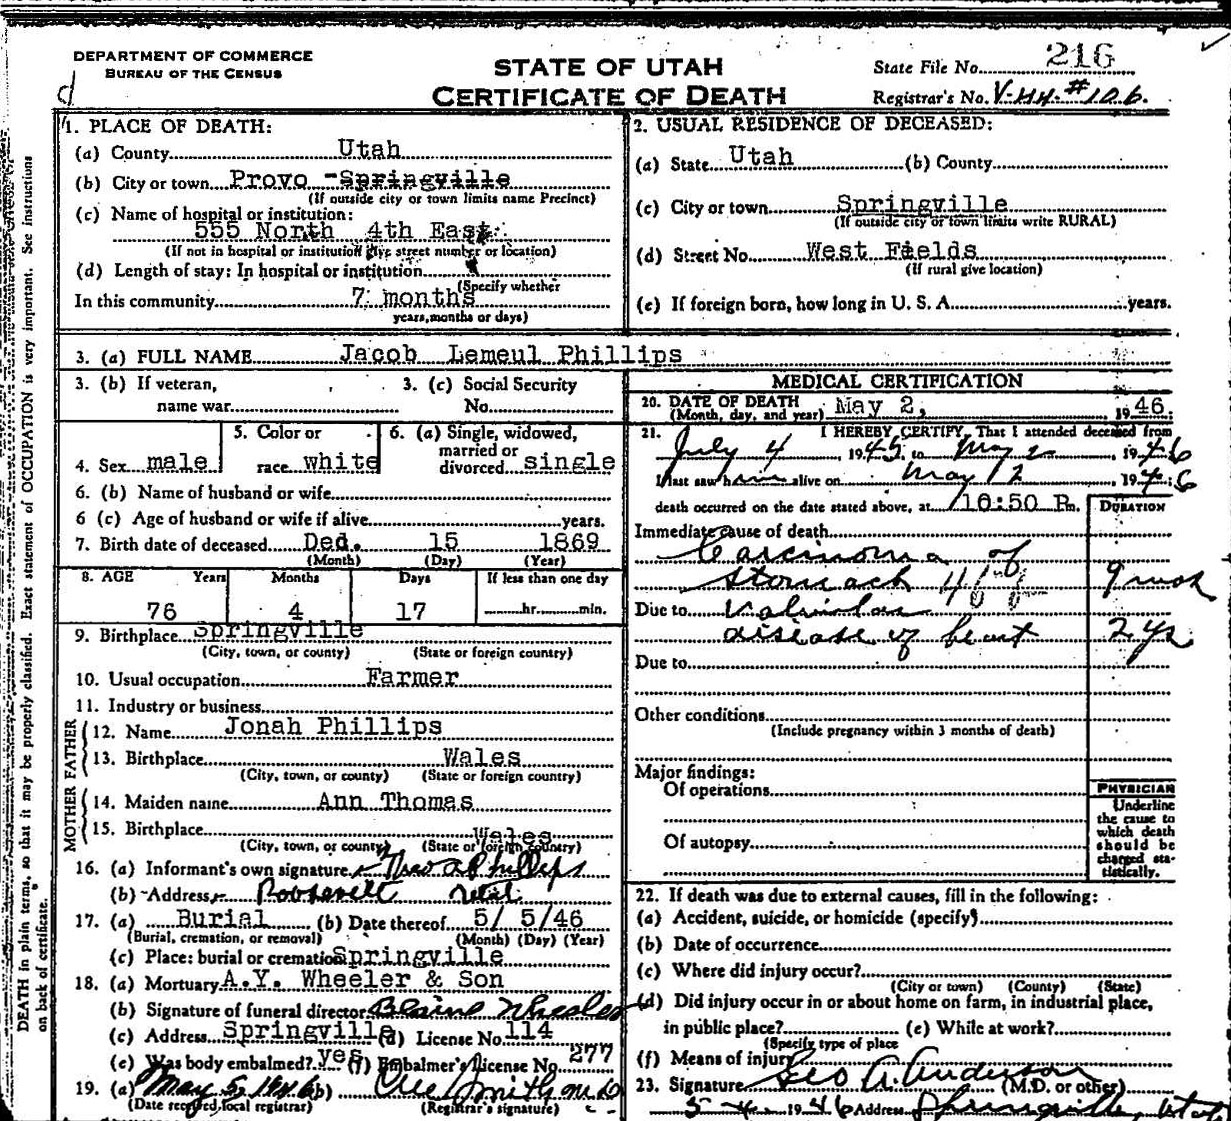 DEPARTMENT OF COMMERCE
BUREAU OF THE CENSUS
STATE OF UTAH
CERTIFICATE OF DEATH
State File No. 216
Registrar's No. V-44-#106.
DEATH in plain terms, so that it may be properly classified. Exact statement of OCCUPATION is very important. See instructions
on back of certificate.
1. PLACE OF DEATH:
(a) County Utah
(b) City or town Provo -Springville
(If outside city or town limits name Precinct)
(c) Name of hospital or institution:
555 North 4th East
(If not in hospital or institution give street number or location)
(d) Length of stay: In hospital or institution
(Specify whether
In this community 7 months
years, months or days)
2. USUAL RESIDENCE OF DECEASED:
(a) State Utah (b) County
(c) City or town Springville
(If outside city or town limits write RURAL)
(d) Street No. West Fields
(If rural give location)
(e) If foreign born, how long in U. S. A. years.
3. (a) FULL NAME Jacob Lemeul Phillips
3. (b) If veteran, name war
3. (c) Social Security No.
4. Sex male
5. Color or race white
6. (a) Single, widowed, married or divorced single
6. (b) Name of husband or wife
6 (c) Age of husband or wife if alive years.
7. Birth date of deceased Ded. 15 1869
(Month) (Day) (Year)
8. AGE Years Months Days If less than one day
76 4 17 hr. min.
9. Birthplace Springville
(City, town, or county) (State or foreign country)
10. Usual occupation Farmer
11. Industry or business
FATHER
12. Name Jonah Phillips
13. Birthplace Wales
(City, town, or county) (State or foreign country)
MOTHER
14. Maiden name Ann Thomas
15. Birthplace Wales
(City, town, or county) (State or foreign country)
16. (a) Informant's own signature Phillips
(b) Address Roosevelt Utah
17. (a) Burial (b) Date thereof 5/ 5/46
(Burial, cremation, or removal) (Month) (Day) (Year)
(c) Place: burial or cremation Springville
18. (a) Mortuary A.Y. Wheeler & Son
(b) Signature of funeral director Blaine Wheeler
(c) Address Springville (d) License No. 114
(e) Was body embalmed? yes (f) Embalmer's License No. 277
19. (a) May 5, 1946 (b) Smith M.D
(Date received local registrar) (Registrar's signature)
MEDICAL CERTIFICATION
20. DATE OF DEATH
(Month, day, and year) May 2, 1946.
21. I HEREBY CERTIFY, That I attended deceased from
July 4, 1945, to May 2, 1946
I last saw him alive on May 2, 1946
death occurred on the date stated above, at 10:50 P.m. DURATION
Immediate cause of death
Carcinoma of
stomach 9 mos
Due to Valvular
disease of heart 2 yrs
Due to
Other conditions
(Include pregnancy within 3 months of death)
Major findings:
Of operations
Of autopsy
PHYSICIAN
Underline
the cause to
which death
should be
charged sta-
tistically.
22. If death was due to external causes, fill in the following:
(a) Accident, suicide, or homicide (specify)
(b) Date of occurrence
(c) Where did injury occur?
(City or town) (County) (State)
(d) Did injury occur in or about home on farm, in industrial place,
in public place? (e) While at work?
(Specify type of place
(f) Means of injury
23. Signature Geo A. Anderson (M.D. or other)
5-4- 1946 Address Springville, Utah